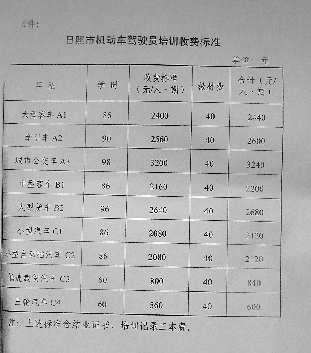 附件:
日照市机动车驾驶员培训收费标准
单位: 元
车型 学时 收费标准(元/人·期) 教材费 合计(元/人·期)
大型客车 A1 86 2400 40 2440
牵引车 A2 90 2560 40 2600
城市公交车 A3 98 3200 40 3240
中型客车 B1 86 2160 40 2200
大型货车 B2 96 2640 40 2680
小型汽车 C1 86 2080 40 2120
小型自动挡汽车 C2 86 2080 40 2120
低速载货汽车 C3 60 800 40 840
三轮汽车 C4 60 560 40 600